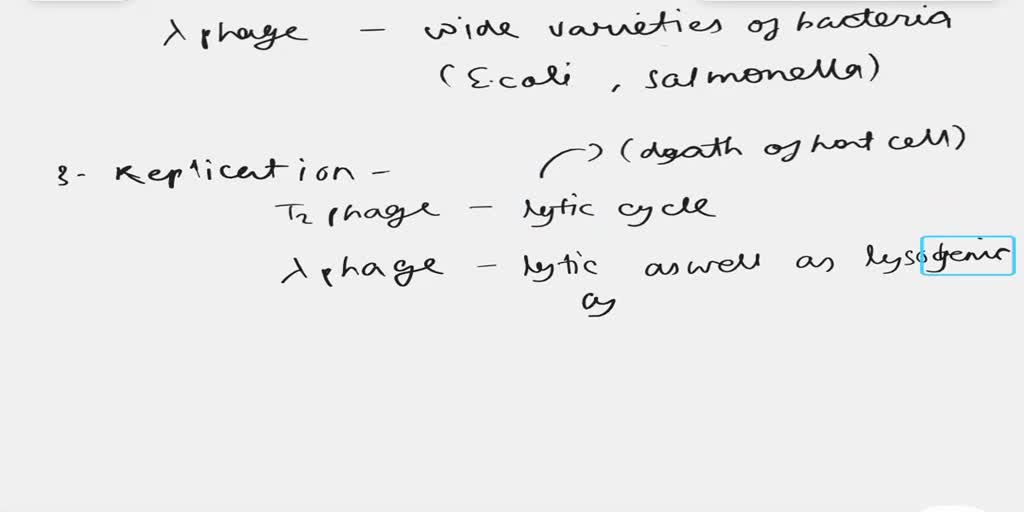 λ phage – wide varieties of bacteria
(E.coli, salmonella)
(death of host cell)
3- Replication –
T2 phage – lytic cycle
λ phage – lytic aswell as lysogenic
cy